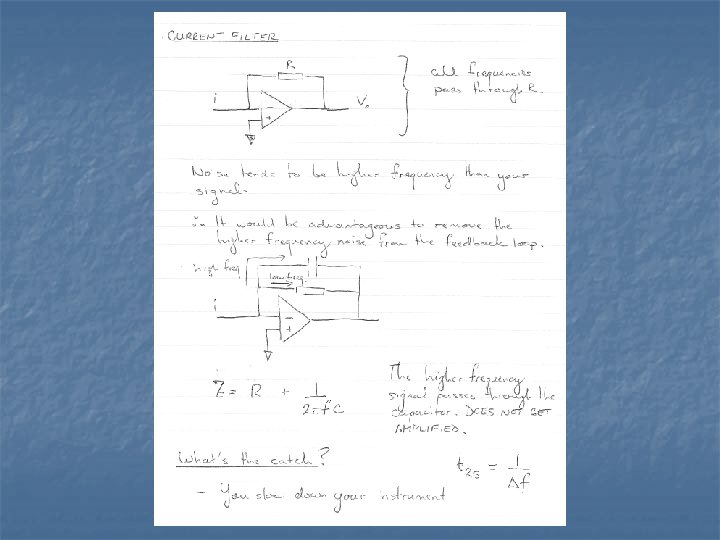 CURRENT FILTER
R
i
-
+
Vo
all frequencies
pass through R.
Noise tends to be higher frequency than your
signal.
∴ It would be advantageous to remove the
higher frequency noise from the feedback loop.
high freq
low freq.
i
-
+
Z = R + 1/2πfC
The higher frequency
signal passes through the
capacitor. DOES NOT GET
AMPLIFIED.
What's the catch?
t25 = 1/Δf
- You slow down your instrument